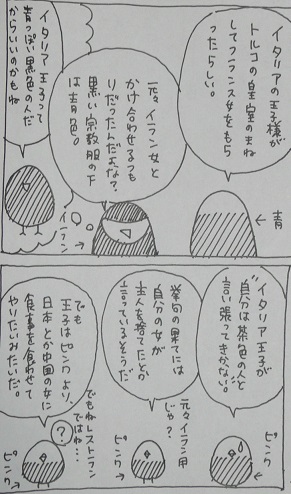 イタリアの王子様が
トルコの皇室のまね
してフランス女をもら
ったらしい。
←青
元々イラン女と
かけ合わせるつも
りだったんだよな?
黒い宗教服の下
は青色。
イラン→
イタリア王子って
青っぽい黒色の人だ
からいいのかもね
イタリア王子が
自分は茶色の人と
言い張ってきかない。
ピンク
挙句の果てには
自分の女が
主人を捨てたとか
言っているそうだ
元々イラン用
じゃ?
ピンク→
でも
王子はピンクより、
日本とか中国の女に
食事を食わせて
やりたいみたいだ。
でもねレストラン
ではね・・・
?
ピンク→